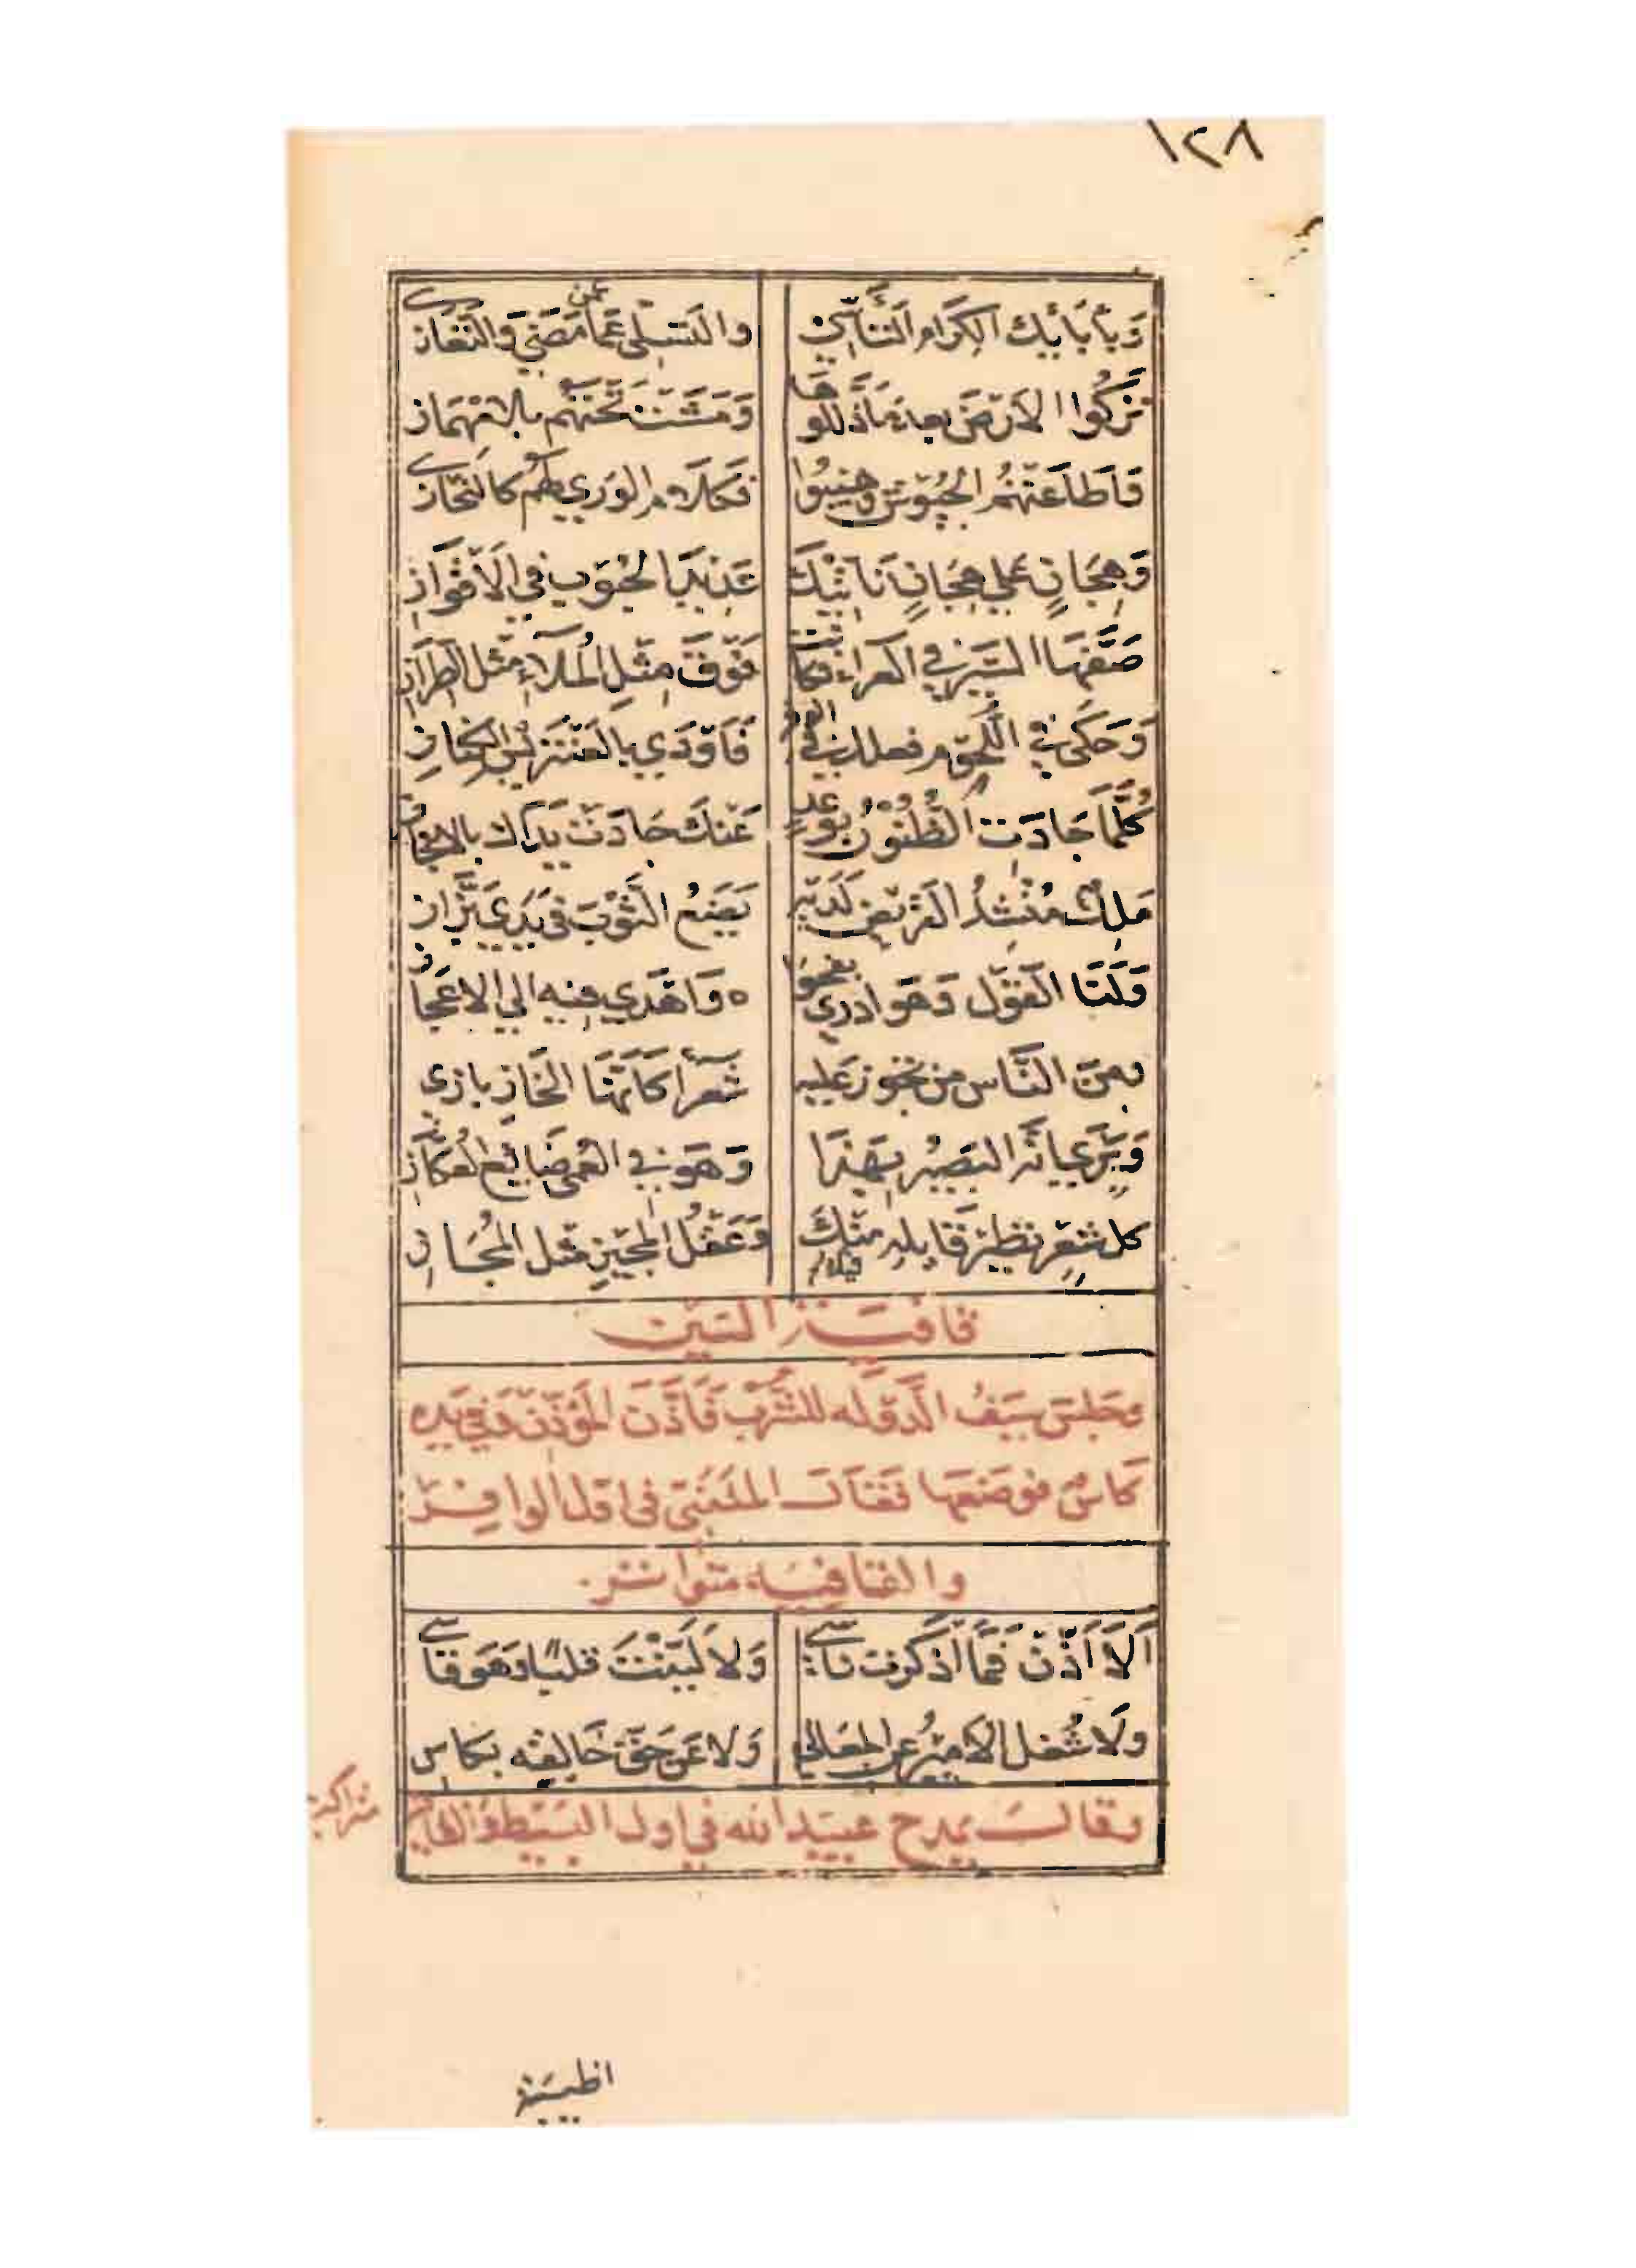 ١٢٨
وَبِآبَائِكَ الكِرَامِ التَّأَسِّي والتَّسَلِّي عَمَّن مَضَى وَالتَّعَازِي
تَرَكُوا الاَرْضَ بعدَ مَا ذَلَّلُوهَا وَمَشَتْ تَحْتَهُم بِلامِهْمَازِ
فَاَطَاعَتْهُمُ الجُيُوشُ وَهِيبُوا فَكَلَامُ الوَرَى لَهُم كالنُّحَازِي
وَهِجَانٍ عَلى هِجَانٍ تَاَتَّيْكَ عَدِيدَ الحُبُوبِ في الاَقْوَازِ
صَفَّهَا السَّيْرُ في العراء فكَانَتْ فَوْقَ مِثْلِ المُلَاءِ مِثْلَ الطِّرَازِ
وَحَكَى في اللُّحُومِ فعلك في الوفر فَاَوْدَى بالعَنْتَرِيسِ الكِنَازِ
كُلَّمَا جَادَتِ الظُّنُونُ بِوَعْدٍ عَنْكَ جَادَتْ يَدَاكَ بالانجَازِ
مَلِكٌ مُنْشِدُ القَرِيضِ لَدَيْهِ يَضَعُ الثَّوْبَ فِي يَدَي بَزَّازِ
وَلَنَا القَوْلُ وَهَو ادرى بفحوا ه وَاَهْدَى فيه الي الاعجَازِ
ومِنَ النَّاسِ من تجوز عَلَيه شُعَرَا كَاَنَّهَا الخَازِبازى
وَيَرَى انَّه البَصِير بِهَذَا وَهَو في العُمْى ضَايع العُكَّازِ
كل شِعْرٍ نظيرُ قَايِلِه مِنْكَ وَعَقْلُ المُجِيزِ مثل المُجَازِ
قافية السين
وجَلسَ سَيْفُ الدَّوْلَه للشُّرْبِ فَاَذَّنَ المُؤَذِّنُ وَفي يَدِه
كَاسٌ فوضَعَها فَقَالَ المُتَنَبِّي في اول الوافر
والقافيه متواتر
اَلَا اَذِّنْ فَمَا اَذْكَرْتَ نَاسِي وَلَا لَيَّنْتَ قلبًا وَهَو قَاسِي
وَلَا شُغل الاَمِيرُ عن المعَالِي وَلا عَن حَقِّ خَالِقِه بكاسِ
وقال يمدح عبيد الله في اول البَسِيط والقافية متراكب
اظبية